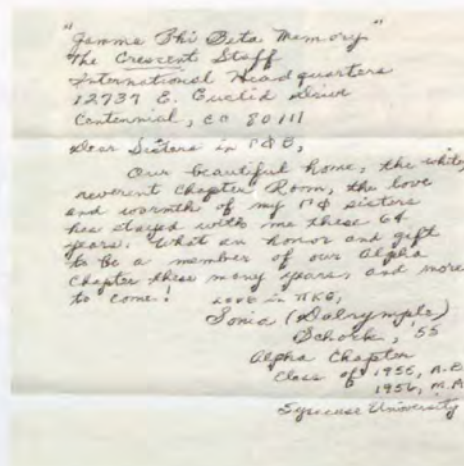 "Gamma Phi Beta Memory"
The Crescent Staff
International Headquarters
12737 E. Euclid Drive
Centennial, CO 80111
Dear Sisters in ΓΦΒ,
Our beautiful home, the white,
reverent Chapter Room, the love
and warmth of my ΓΦ sisters
has stayed with me these 64
years. What an honor and gift
to be a member of our Alpha
Chapter these many years, and more
to come!
Love in ΠΚΕ,
Sonia (Dalrymple)
Schock, '55
Alpha Chapter
Class of 1955, A.B.
1956, M.A.
Syracuse University